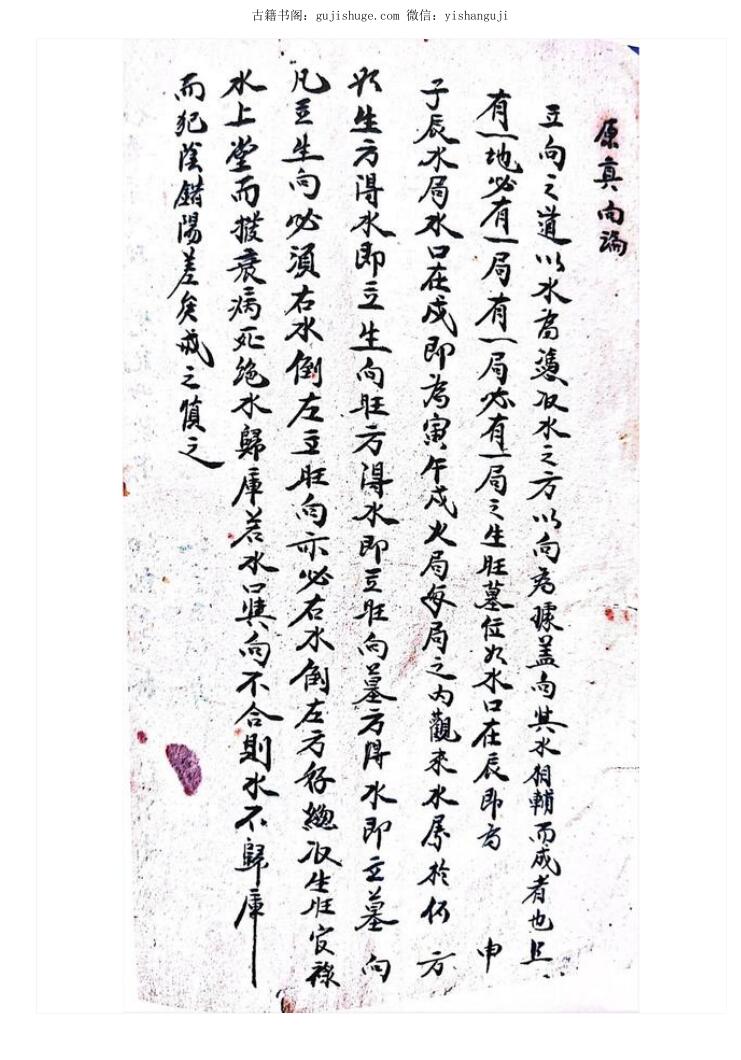 古籍书阁: gujishuge.com 微信: yishanguji
原真向論
立向之道以水為憑收水之方以向為據盖向與水相輔而成者也且
有一地必有一局有一局必有一局之生旺墓位如水口在辰即為申
子辰水局水口在戌即為寅午戌火局每局之內觀來水屬於何方
如生方淂水即立生向旺方淂水即立旺向墓方淂水即立墓向
凡立生向必須右水倒左立旺向亦必右水倒左方好總收生旺官祿
水上堂而撥衰病死绝水歸庫若水口與向不合則水不歸庫
而犯陰錯陽差矣戒之慎之